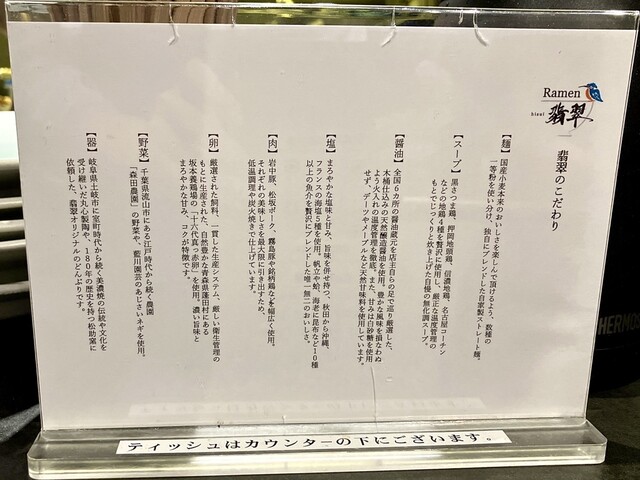 Ramen
hisui
翡翠
翡翠のこだわり
【麺】国産小麦本来のおいしさを楽しんで頂けるよう、数種の
一等粉を使い分け、独自にブレンドした自家製ストレート麺。
【スープ】黒さつま鶏、押岡地頭鶏、信濃地鶏、名古屋コーチン
などの地鶏4種を贅沢に使用し、厳正な温度管理の
もとでじっくりと炊き上げた自慢の無化調スープ。
【醤油】全国6カ所の醤油蔵元を店主自らの足で巡り厳選した、
木桶仕込みの天然醸造醤油を使用。豊かな風味を損なわぬ
よう火入れの温度管理を徹底。また、甘みは白砂糖を使用
せず、デーツやメープルなど天然甘味料を使用しています。
【塩】まろやかな塩味と甘み、旨味を併せ持つ、秋田から沖縄、
フランスの海塩5種を使用。帆立や蛤、海老に昆布など10種
以上の魚介を贅沢にブレンドした唯一無二のおいしさ。
【肉】岩中豚、松坂ポーク、霧島豚や銘柄鶏など幅広く使用。
それぞれの美味しさを最大限に引き出すため、
低温調理や炭火焼きで仕上げています。
【卵】厳選された飼料、一貫した生産システム、厳しい衛生管理の
もとに生産された、自然豊かな青森県蓬田村にある
坂本養鶏場の「十六代真っ赤卵」を使用。濃い旨味と
まろやかな甘み、コクが特徴です。
【野菜】千葉県流山市にある江戸時代から続く農園
「森田農園」の野菜や、藍川園芸のあじさいネギを使用。
【器】岐阜県土岐市に室町時代から続く美濃焼の伝統や文化を
受け継いだ丸心製陶や、180年の歴史を持つ松助窯に
依頼した、翡翠オリジナルのどんぶりです。
ティッシュはカウンターの下にございます。